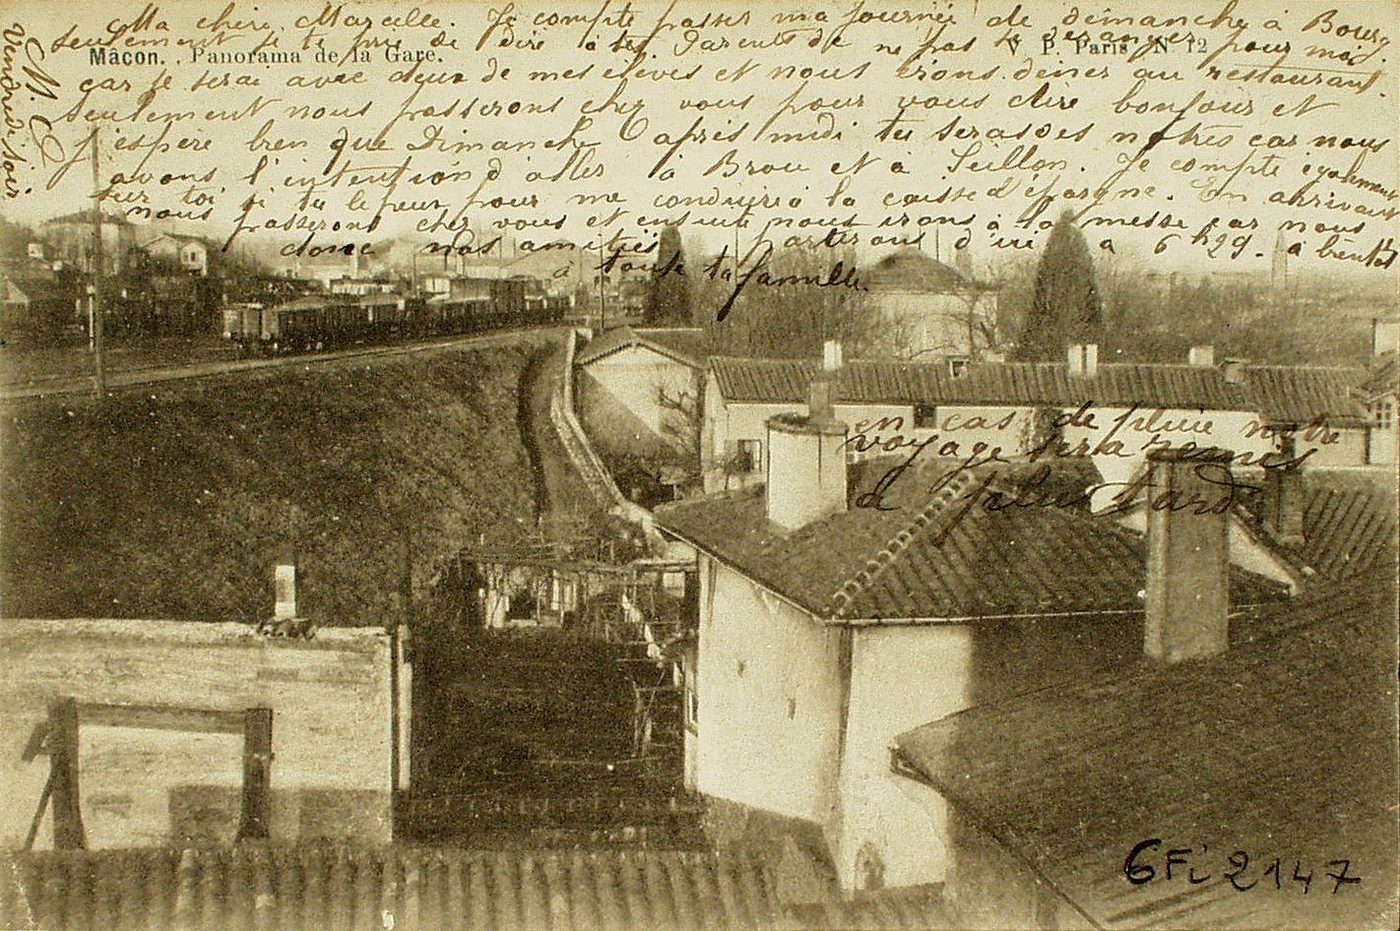 Ma chère Marcelle. Je compte passer ma journée de dimanche à Bourg
seulement je te prie de dire à tes Parents de ne pas se déranger pour moi
Mâcon. Panorama de la Gare.
V. P. Paris N 12
car je serai avec deux de mes élèves et nous irons diner au restaurant.
seulement nous passerons chez vous pour vous dire bonjour et
j'espère bien que Dimanche après midi tu seras des notres car nous
avons l'intention d'aller à Brou et à Seillon. Je compte également
sur toi si tu le peux pour me conduire à la caisse d'épargne. En arrivant
nous passerons chez vous et ensuite nous irons à la messe car nous
donc nos amitiés partirons d'ici à 6h29. à bientôt
à toute ta famille.
Vendredi soir
M. C.
en cas de pluie notre
voyage sera remis
à plus tard
6Fi2147